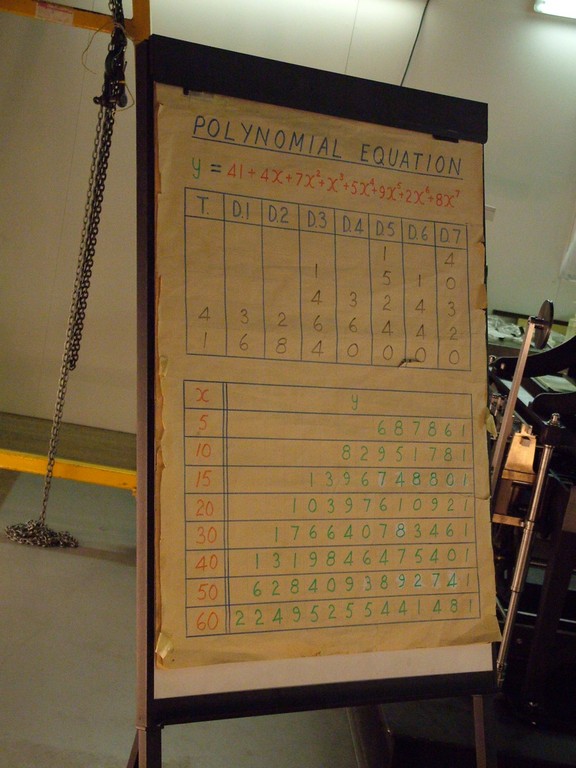 POLYNOMIAL EQUATION
y = 41 + 4x + 7x² + x³ + 5x⁴ + 9x⁵ + 2x⁶ + 8x⁷
T. D.1 D.2 D.3 D.4 D.5 D.6 D.7
1 4
1 5 1 0
4 3 2 4 3
4 3 2 6 6 4 4 2
1 6 8 4 0 0 0 0
x y
5 687861
10 82951781
15 1396748801
20 10397610921
30 176640783461
40 1319846475401
50 6284093892741
60 22495255441481